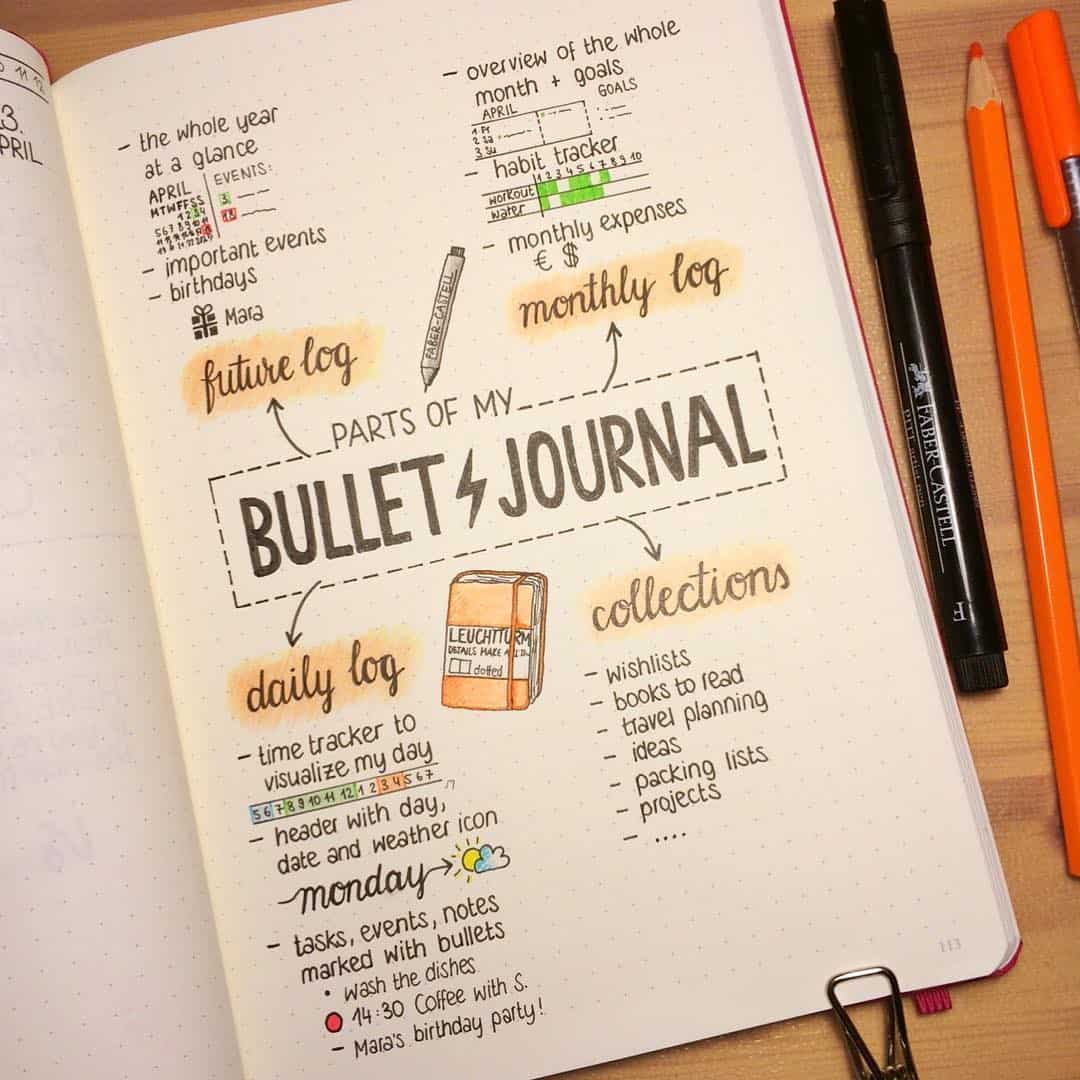 11 12
3.
PRIL
- the whole year
at a glance
APRIL
MTWTFSS
1 2 3 4
5 6 7 8 9 10 11
EVENTS:
3
- important events
- birthdays
Mara
future log
- overview of the whole
month + goals
APRIL
1 Fr
2 Sa
3 Su
GOALS
- habit tracker
1 2 3 4 5 6 7 8 9 10
workout
water
- monthly expenses
€ $
monthly log
FABER-CASTELL
PARTS OF MY
BULLET JOURNAL
daily log
- time tracker to
visualize my day
5 6 7 8 9 10 11 12 1 2 3 4 5 6 7
- header with day,
date and weather icon
monday
- tasks, events, notes
marked with bullets
• wash the dishes
14:30 Coffee with S.
- Mara's birthday party!
LEUCHTTURM
DETAILS MAKE
dotted
collections
- wishlists
- books to read
- travel planning
- ideas
- packing lists
- projects
- ....
113
FABER-CASTELL
F